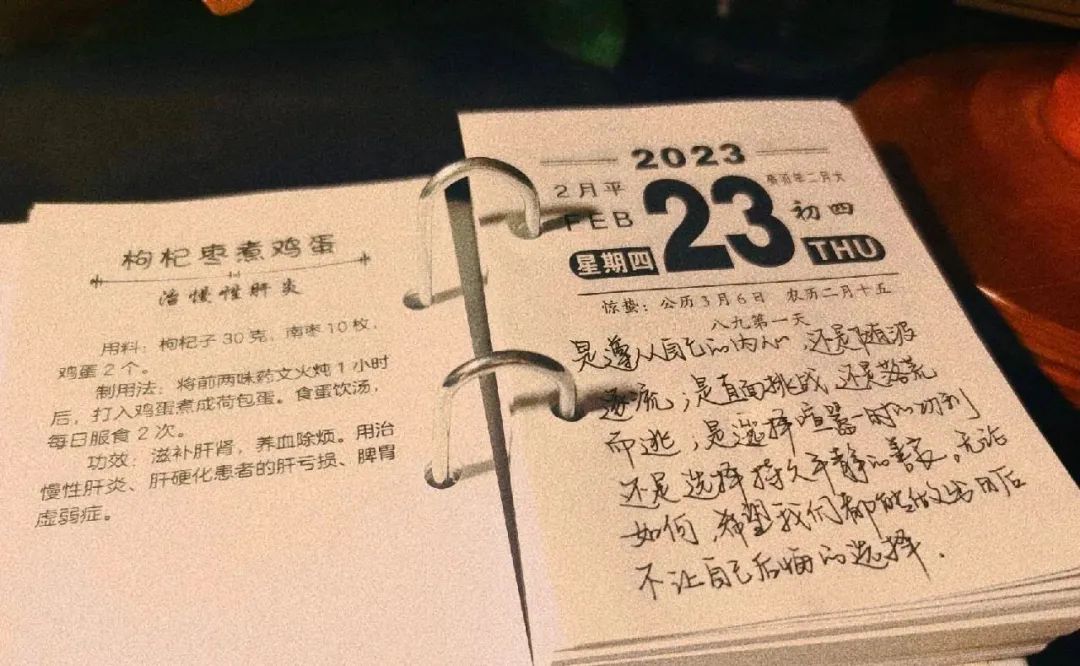 枸杞枣煮鸡蛋
治慢性肝炎
用料：枸杞子30克，南枣10枚，
鸡蛋2个。
制用法：将前两味药文火炖1小时
后，打入鸡蛋煮成荷包蛋。食蛋饮汤，
每日服食2次。
功效：滋补肝肾，养血除烦。用治
慢性肝炎、肝硬化患者的肝亏损、脾胃
虚弱症。
2023
2月平
癸卯年二月大
FEB
23
初四
星期四
THU
惊蛰：公历3月6日 农历二月十五
八九第一天
是遵从自己的内心，还是随波
逐流，是直面挑战，还是落荒
而逃，是选择喧嚣一时的功利
还是选择持久平静的善良。无论
如何，希望我们都能做出日后
不让自己后悔的选择.